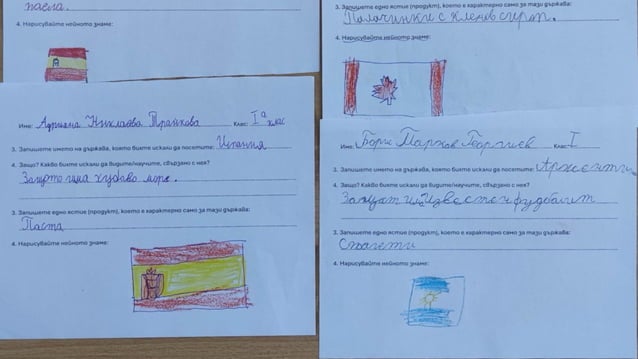 паела.
4. Нарисувайте нейното знаме:
3. Запишете едно ястие (продукт), което е характерно само за тази държава:
Палачинки с кленов сироп.
4. Нарисувайте нейното знаме:
Име: Адриана Николаева Траикова Клас: I а клас
3. Запишете името на държава, която бихте искали да посетите: Испания
4. Защо? Какво бихте искали да видите/научите, свързано с нея?
Защото има хубаво море.
3. Запишете едно ястие (продукт), което е характерно само за тази държава:
Паста
4. Нарисувайте нейното знаме:
Име: Борис Марков Георгиев Клас: I
3. Запишете името на държава, която бихте искали да посетите: Аржентин
4. Защо? Какво бихте искали да видите/научите, свързано с нея?
известен фудбалит
3. Запишете едно ястие (продукт), което е характерно само за тази държава:
Спагети
4. Нарисувайте нейното знаме: